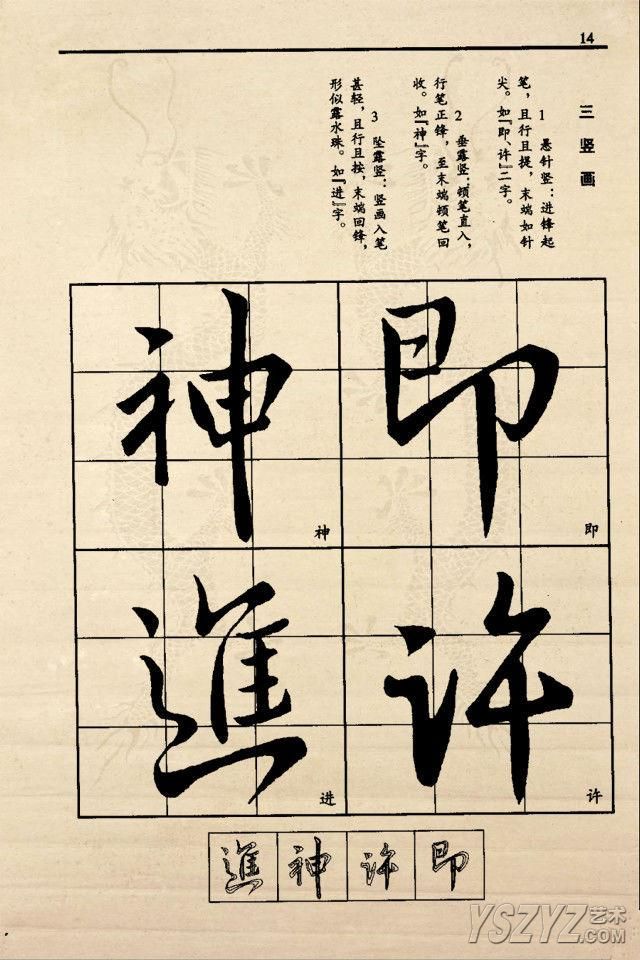 14
三 竖 画
1 悬针竖：进锋起
笔，且行且提，末端如针
尖。如『即、许』二字。
2 垂露竖：顿笔直入，
行笔正锋，至末端顿笔回
收。如『神』字。
3 坠露竖：竖画入笔
甚轻，且行且按，末端回锋，
形似露水珠。如『进』字。
即
即
许
许
神
神
進
进
即
许
神
進
YSZYZ艺术
.COM